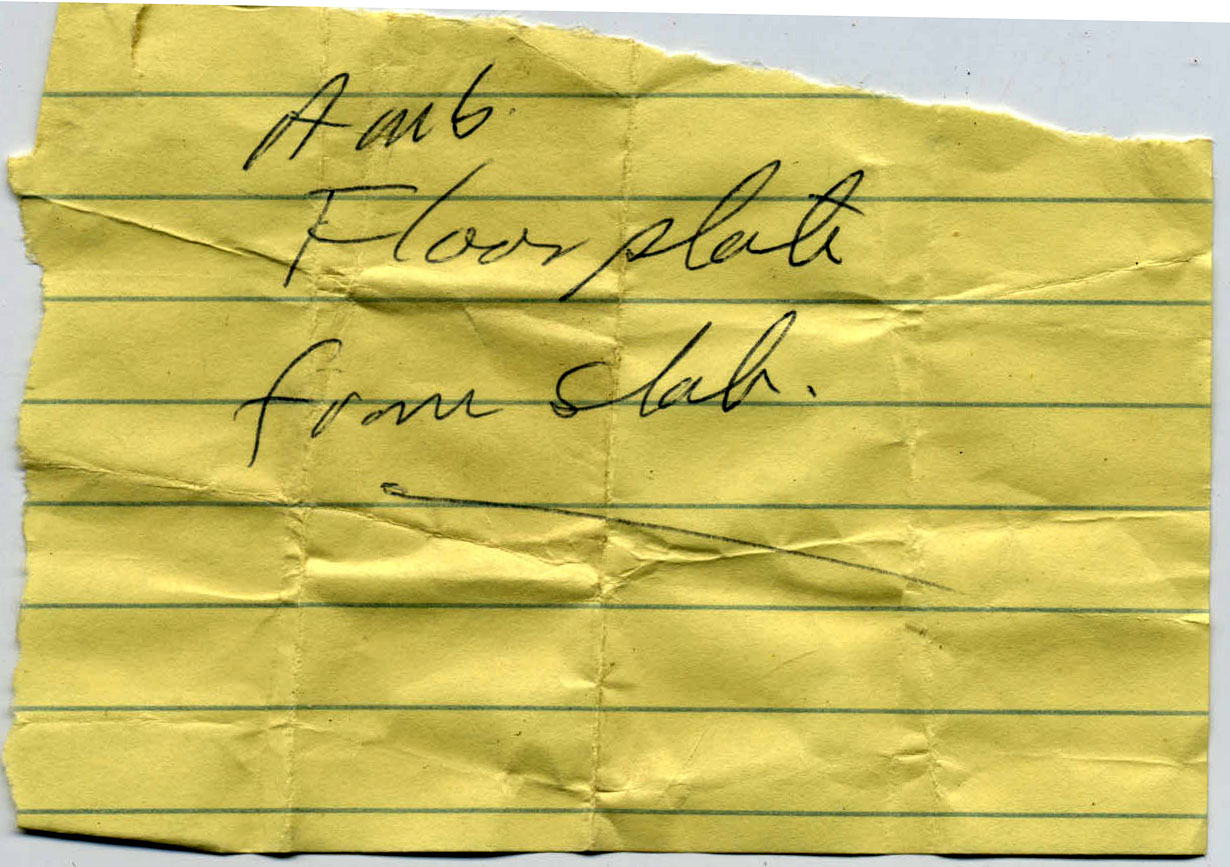 Amb.
Floorplate
from slab.